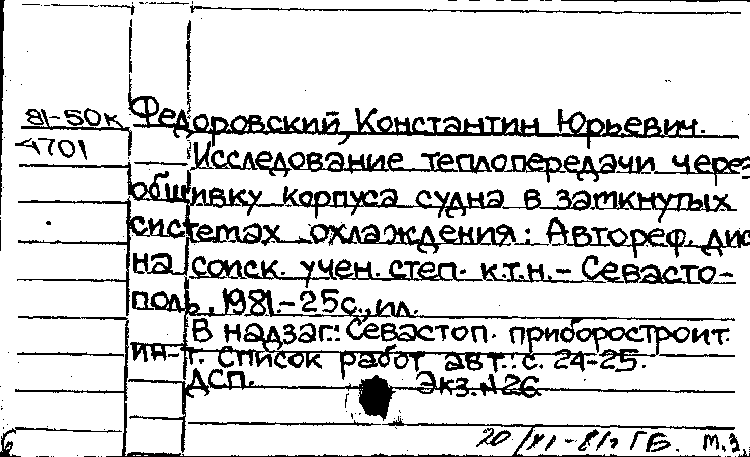 81-50к Федоровский, Константин Юрьевич.
4701 Исследование теплопередачи через
обшивку корпуса судна в заткнутых
системах охлаждения: Автореф. дис
на соиск. учен. степ. к.т.н.- Севасто-
поль, 1981.-25с., ил.
В надзаг.: Севастоп. приборостроит.
ин-т. Список работ авт.: с. 24-25.
ДСП. Экз.N26
20/XI-81г ГБ. М.З.